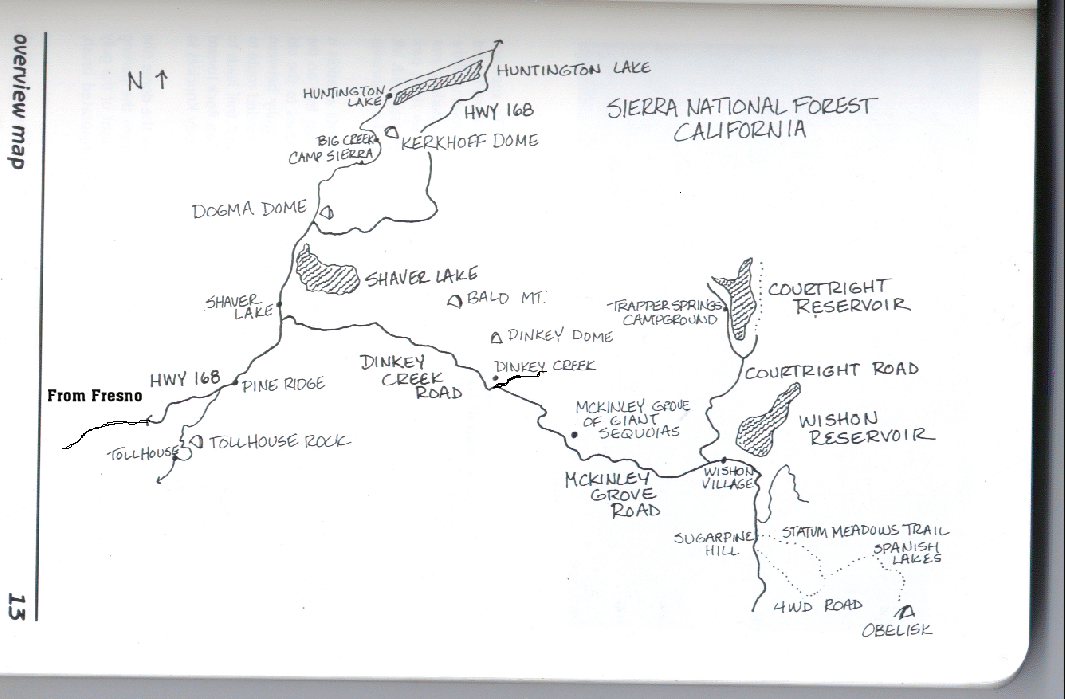 overview map
13
N ↑
HUNTINGTON LAKE
HUNTINGTON
LAKE
HWY 168
SIERRA NATIONAL FOREST
CALIFORNIA
BIG CREEK
CAMP SIERRA
KERKHOFF DOME
DOGMA DOME
SHAVER LAKE
BALD MT.
SHAVER
LAKE
TRAPPER SPRINGS
CAMPGROUND
COURTRIGHT
RESERVOIR
DINKEY DOME
DINKEY
CREEK
ROAD
DINKEY CREEK
COURTRIGHT ROAD
HWY 168
PINE RIDGE
From Fresno
MCKINLEY GROVE
OF GIANT
SEQUOIAS
WISHON
RESERVOIR
TOLLHOUSE
TOLLHOUSE ROCK
MCKINLEY
GROVE
ROAD
WISHON
VILLAGE
SUGARPINE
HILL
STATUM MEADOWS TRAIL
SPANISH
LAKES
4WD ROAD
OBELISK